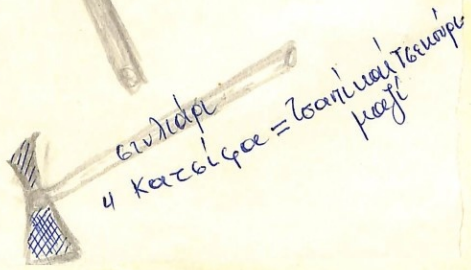 στυλιάρι
η κατσίφα = τσαπί και τσεκούρι
μαζί